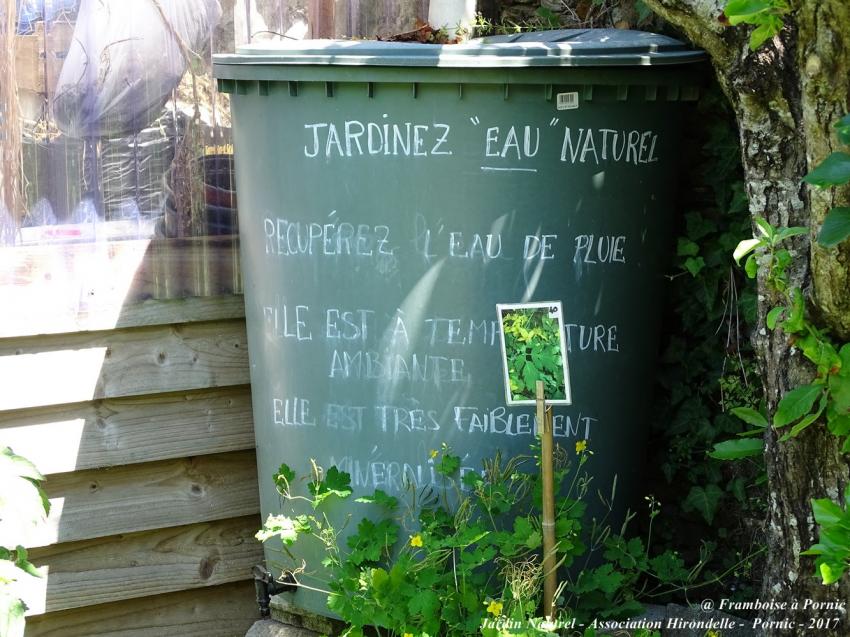 JARDINEZ "EAU" NATUREL
RECUPÉREZ L'EAU DE PLUIE
ELLE EST À TEMP TURE
AMBIANTE
ELLE EST TRÈS FAIBLEMENT
MINÉRALISÉE
40
@ Framboise à Pornic
Jardin Naturel - Association Hirondelle - Pornic - 2017